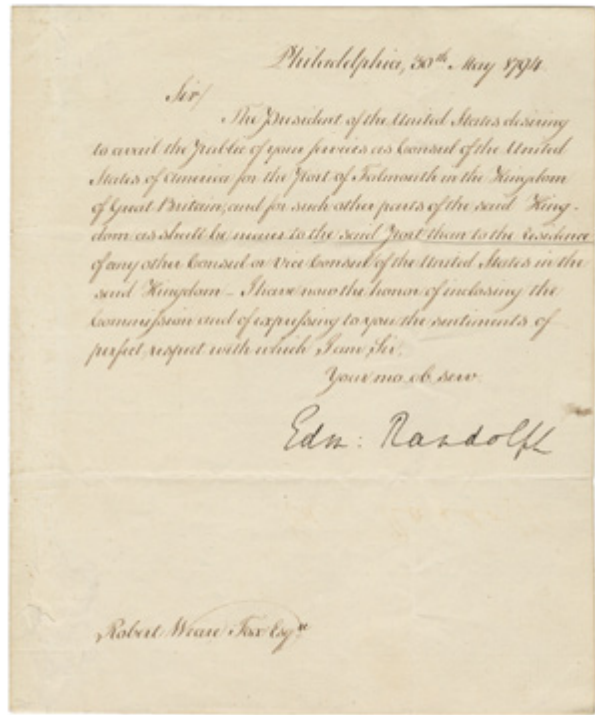 Philadelphia, 30th May 1794.
Sir/
The President of the United States desiring
to avail the Public of your services as Consul of the United
States of America for the Port of Falmouth in the Kingdom
of Great Britain, and for such other parts of the said King-
dom as shall be nearer to the said Port than to the residence
of any other Consul or Vice Consul of the United States in the
said Kingdom - I have now the honor of inclosing the
Commission and of expressing to you the sentiments of
perfect respect with which, I am, Sir,
Your mo. ob. serv.
Edm: Randolph
Robert Weare Fox Esqre